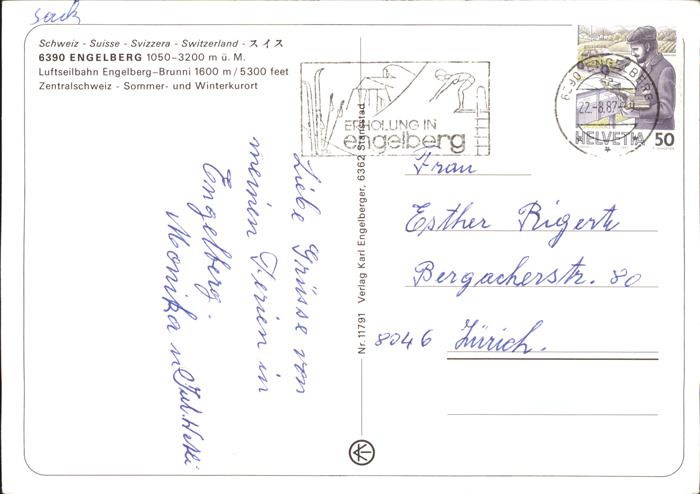 Schweiz - Suisse - Svizzera - Switzerland - スイス
6390 ENGELBERG 1050–3200 m ü. M.
Luftseilbahn Engelberg–Brunni 1600 m / 5300 feet
Zentralschweiz - Sommer- und Winterkurort
ERHOLUNG IN
engelberg
6390 ENGELBERG
22.-8.87
HELVETIA 50
Liebe Grüsse von
meinen Ferien in
Engelberg.
Monika u
Nr. 11791 Verlag Karl Engelberger, 6362 Stansstad
Frau
Esther Rigert
Bergacherstr. 80
8046 Zürich.